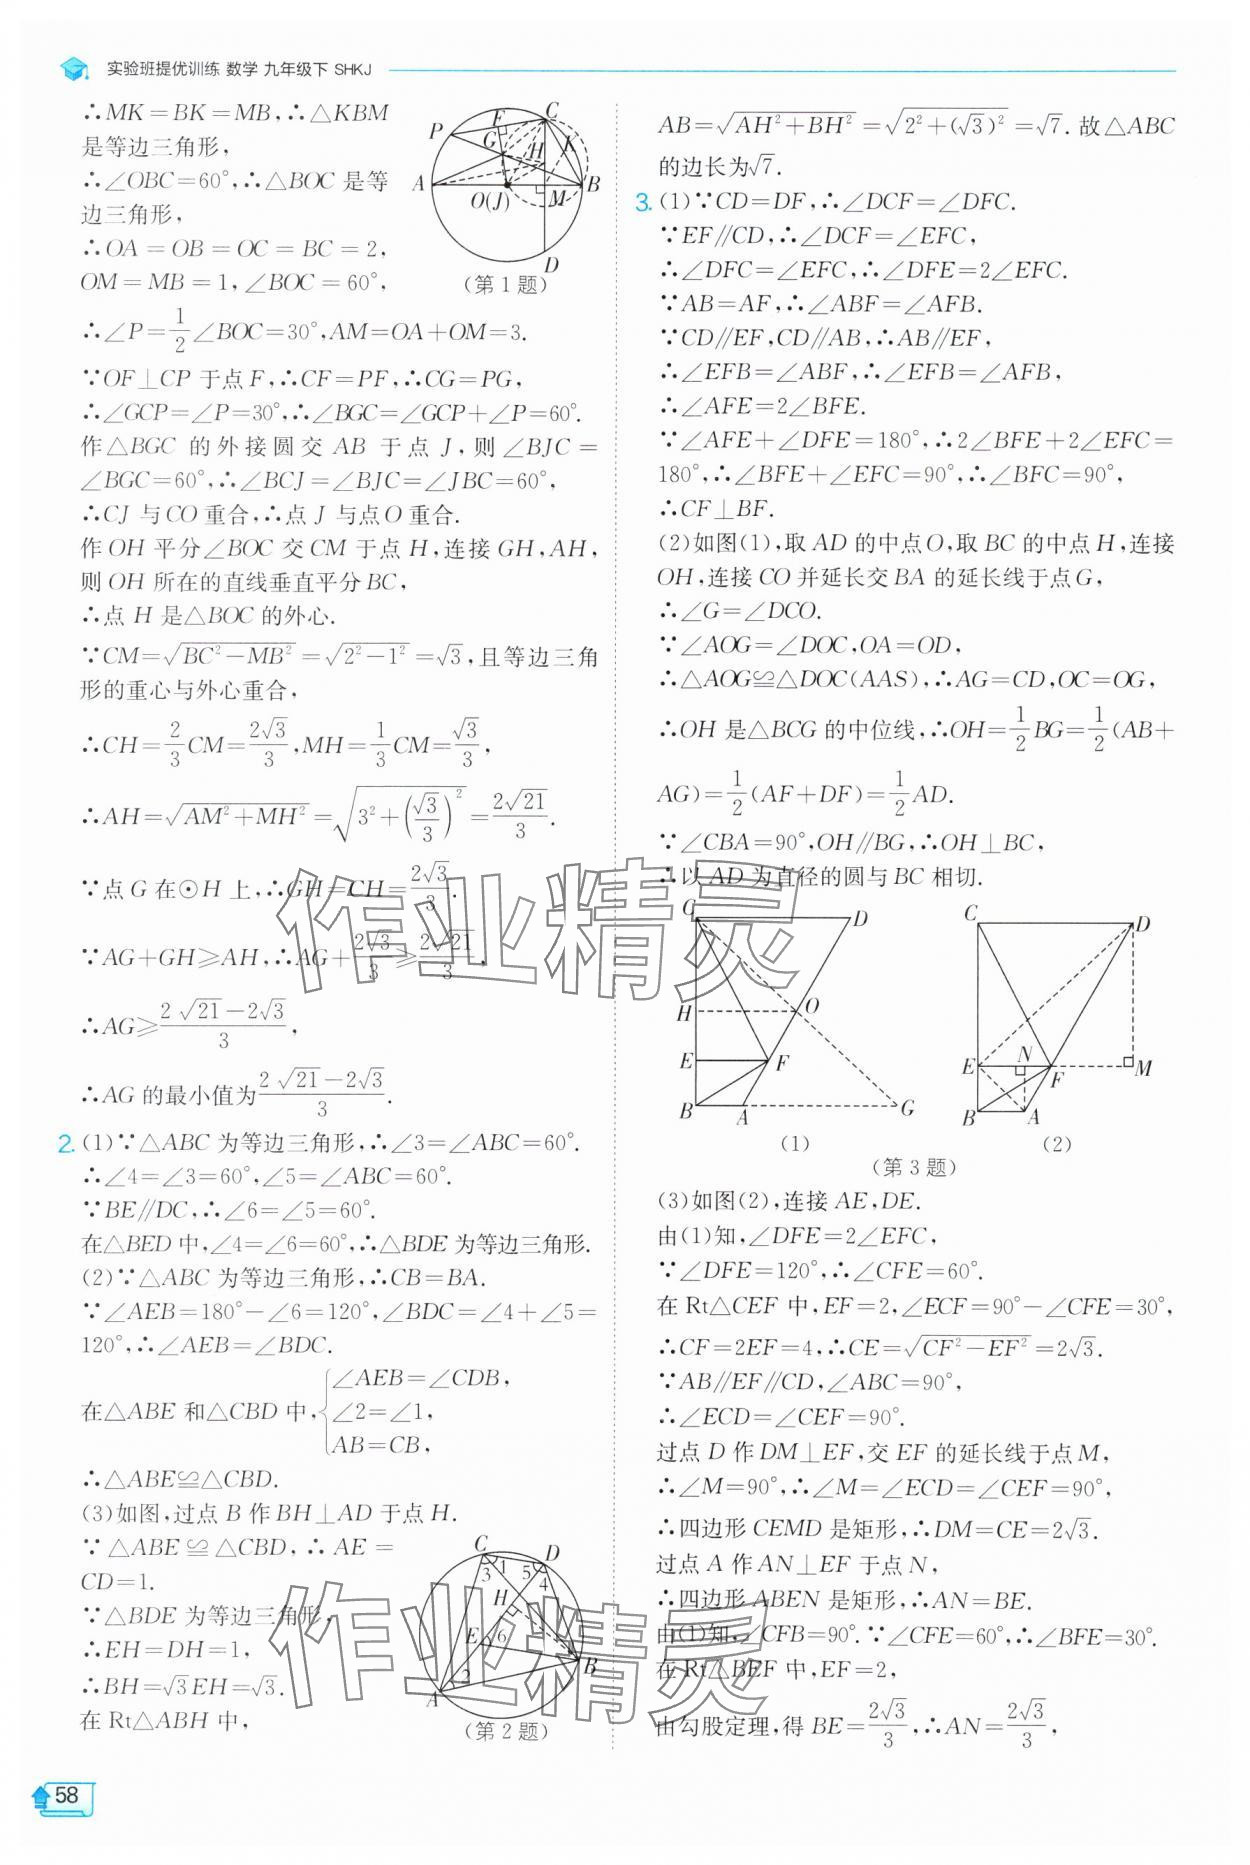 实验班提优训练 数学 九年级下 SHKJ
∴MK=BK=MB,∴△KBM
是等边三角形,
∴∠OBC=60°,∴△BOC 是等
边三角形,
∴OA=OB=OC=BC=2,
OM=MB=1,∠BOC=60°,
P F C G H K A O(J) M B D
(第1题)
∴∠P=1/2∠BOC=30°,AM=OA+OM=3.
∵OF⊥CP 于点F,∴CF=PF,∴CG=PG,
∴∠GCP=∠P=30°,∴∠BGC=∠GCP+∠P=60°.
作△BGC 的外接圆交 AB 于点 J,则∠BJC=
∠BGC=60°,∴∠BCJ=∠BJC=∠JBC=60°,
∴CJ 与CO重合,∴点 J 与点O重合.
作OH 平分∠BOC 交 CM 于点 H,连接GH,AH,
则OH 所在的直线垂直平分BC,
∴点 H 是△BOC 的外心.
∵CM=√(BC²-MB²)=√(2²-1²)=√3,且等边三角
形的重心与外心重合,
∴CH=2/3CM=2√3/3,MH=1/3CM=√3/3,
∴AH=√(AM²+MH²)=√(3²+(√3/3)²)=2√21/3.
∵点 G 在⊙H 上,∴GH=CH=2√3/3.
∵AG+GH≥AH,∴AG+2√3/3≥2√21/3,
∴AG≥(2√21-2√3)/3,
∴AG 的最小值为(2√21-2√3)/3.
2. (1)∵△ABC 为等边三角形,∴∠3=∠ABC=60°.
∴∠4=∠3=60°,∠5=∠ABC=60°.
∵BE∥DC,∴∠6=∠5=60°.
在△BED 中,∠4=∠6=60°,∴△BDE 为等边三角形.
(2)∵△ABC 为等边三角形,∴CB=BA.
∵∠AEB=180°-∠6=120°,∠BDC=∠4+∠5=
120°,∴∠AEB=∠BDC.
在△ABE 和△CBD 中,{∠AEB=∠CDB,
∠2=∠1,
AB=CB,
∴△ABE≌△CBD.
(3)如图,过点 B 作BH⊥AD 于点 H.
∵△ABE≌△CBD,∴AE=
CD=1.
∵△BDE 为等边三角形,
∴EH=DH=1,
∴BH=√3EH=√3.
在 Rt△ABH 中,
C D 3 1 5 4 H E 6 B A 2
(第2题)
58
AB=√(AH²+BH²)=√(2²+(√3)²)=√7.故△ABC
的边长为√7.
3. (1)∵CD=DF,∴∠DCF=∠DFC.
∵EF∥CD,∴∠DCF=∠EFC,
∴∠DFC=∠EFC,∴∠DFE=2∠EFC.
∵AB=AF,∴∠ABF=∠AFB.
∵CD∥EF,CD∥AB,∴AB∥EF,
∴∠EFB=∠ABF,∴∠EFB=∠AFB,
∴∠AFE=2∠BFE.
∵∠AFE+∠DFE=180°,∴2∠BFE+2∠EFC=
180°,∴∠BFE+∠EFC=90°,∴∠BFC=90°,
∴CF⊥BF.
(2)如图(1),取 AD 的中点O,取 BC 的中点 H,连接
OH,连接CO并延长交BA 的延长线于点G,
∴∠G=∠DCO.
∵∠AOG=∠DOC,OA=OD,
∴△AOG≌△DOC(AAS),∴AG=CD,OC=OG,
∴OH 是△BCG 的中位线,∴OH=1/2BG=1/2(AB+
AG)=1/2(AF+DF)=1/2AD.
∵∠CBA=90°,OH∥BG,∴OH⊥BC,
∴以 AD 为直径的圆与BC 相切.
C D H O E F B A G
(1)
C D E N F M B A
(2)
(第3题)
(3)如图(2),连接 AE,DE.
由(1)知,∠DFE=2∠EFC,
∵∠DFE=120°,∴∠CFE=60°.
在 Rt△CEF 中,EF=2,∠ECF=90°-∠CFE=30°,
∴CF=2EF=4,∴CE=√(CF²-EF²)=2√3.
∵AB∥EF∥CD,∠ABC=90°,
∴∠ECD=∠CEF=90°.
过点 D 作DM⊥EF,交 EF 的延长线于点M,
∴∠M=90°,∴∠M=∠ECD=∠CEF=90°,
∴四边形CEMD 是矩形,∴DM=CE=2√3.
过点 A 作AN⊥EF 于点N,
∴四边形 ABEN 是矩形,∴AN=BE.
由(1)知,∠CFB=90°.∵∠CFE=60°,∴∠BFE=30°.
在 Rt△BEF 中,EF=2,
由勾股定理,得 BE=2√3/3,∴AN=2√3/3,
作业精灵
作业精灵